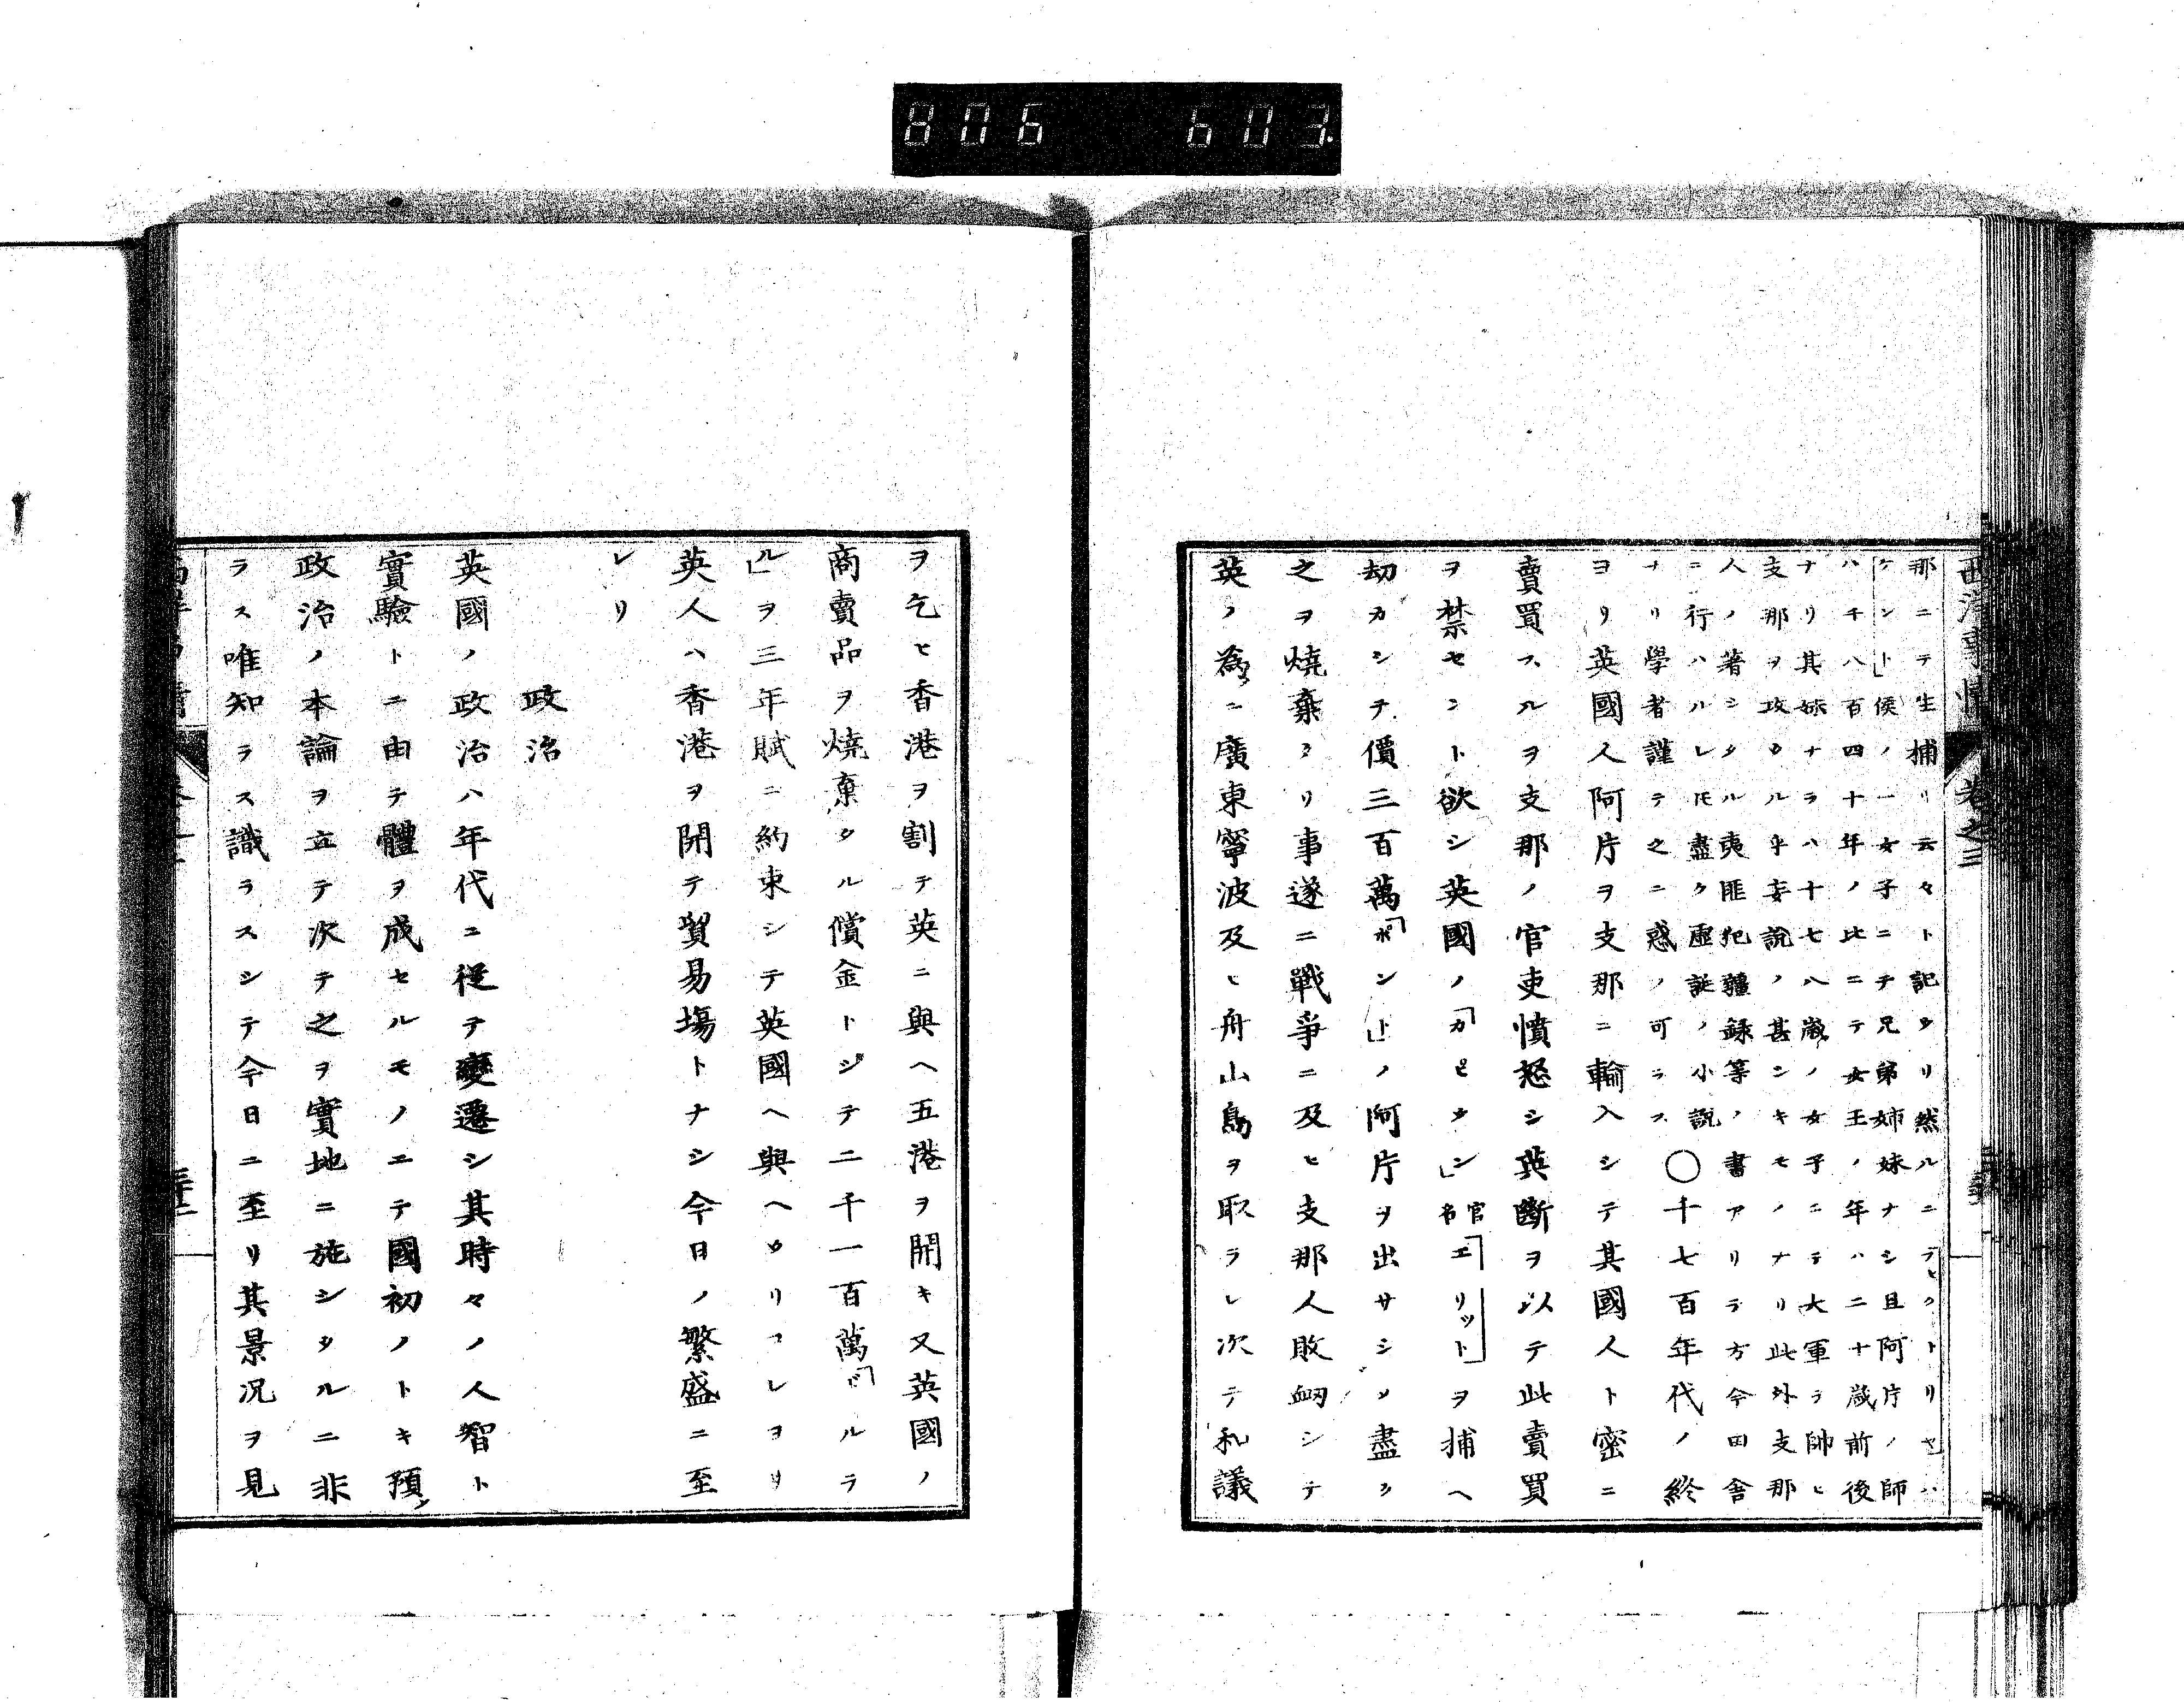 806 603.
西洋事情 卷之三
那ニテ生捕リ云々ト記シタリ然ルニ「ヒクトリヤ」ハ
ケント」侯ノ一女子ニテ兄弟姉妹ナシ且阿片ノ師
ハ千八百四十年ノ比ニテ女王ノ年ハ二十歳前後
ナリ其妹ナラハ十七八歳ノ女子ニテ大軍ヲ帥ヒ
支那ヲ攻ムル乎妄説ノ甚シキモノナリ此外支那
人ノ著シタル夷匪犯疆録等ノ書アリテ方今田舎
ニ行ハルレ𪜈盡ク虚誕ノ小説
ナリ學者謹テ之ニ惑ノ可ラス
〇十七百年代ノ終
ヨリ英國人阿片ヲ支那ニ輸入シテ其國人ト密ニ
賣買スルヲ支那ノ官吏憤怒シ英斷ヲ以テ此賣買
ヲ禁セント欲シ英國ノ「カピタン」官名「エリット」ヲ捕ヘ
劫カシテ價三百萬「ポント」ノ阿片ヲ出サシメ盡ク
之ヲ燒棄タリ事遂ニ戰爭ニ及ヒ支那人敗衂シテ
英ノ為ニ廣東寧波及ヒ舟山島ヲ取ラレ次テ和議
ヲ乞ヒ香港ヲ割テ英ニ與ヘ五港ヲ開キ又英國ノ
商賣品ヲ燒棄タル償金トシテ二千一百萬「ドルラ
ル」ヲ三年賦ニ約束シテ英國ヘ與ヘタリコレヨリ
英人ハ香港ヲ開テ貿易塲トナシ今日ノ繁盛ニ至
レリ
政治
英國ノ政治ハ年代ニ從テ變遷シ其時々ノ人智ト
實驗トニ由テ體ヲ成セルモノニテ國初ノトキ預メ
政治ノ本論ヲ立テ次テ之ヲ實地ニ施シタルニ非
ラス唯知ラス識ラスシテ今日ニ至リ其景況ヲ見